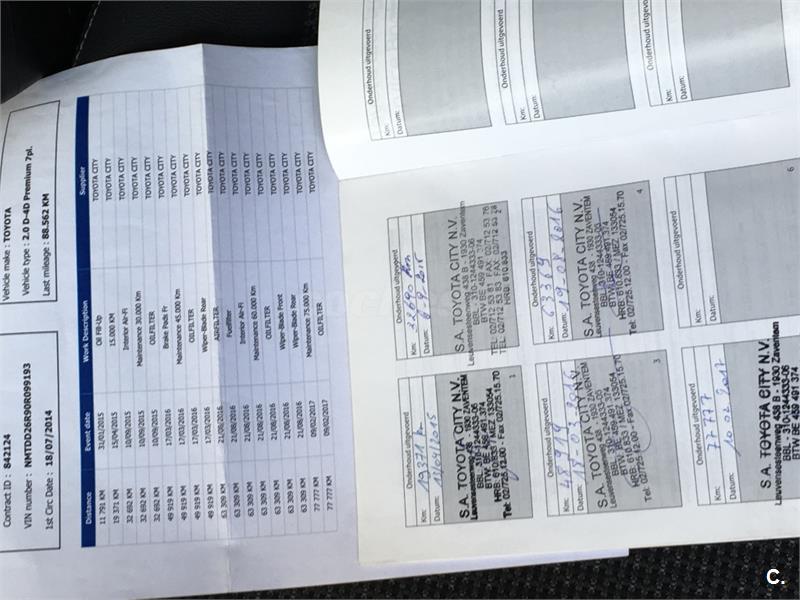 Contract ID : 842124
VIN number : NMTDD26R90R099193
1st Circ Date : 18/07/2014
Vehicle make : TOYOTA
Vehicle type : 2.0 D-4D Premium 7pl.
Last mileage : 88.562 KM
Distance Event date Work Description Supplier
11 791 KM 31/01/2015 Oil Fill-Up TOYOTA CITY
19 371 KM 15/04/2015 15.000 KM TOYOTA CITY
32 692 KM 10/09/2015 Interior Air-Fi TOYOTA CITY
32 692 KM 10/09/2015 Maintenance 30.000 Km TOYOTA CITY
32 692 KM 10/09/2015 OILFILTER TOYOTA CITY
49 919 KM 17/03/2016 Brake Pads Fr TOYOTA CITY
49 919 KM 17/03/2016 Maintenance 45.000 Km TOYOTA CITY
49 919 KM 17/03/2016 OILFILTER TOYOTA CITY
49 919 KM 17/03/2016 Wiper-Blade Rear TOYOTA CITY
63 309 KM 21/08/2016 AIRFILTER TOYOTA CITY
63 309 KM 21/08/2016 Fuelfilter TOYOTA CITY
63 309 KM 21/08/2016 Interior Air-Fi TOYOTA CITY
63 309 KM 21/08/2016 Maintenance 60.000 Km TOYOTA CITY
63 309 KM 21/08/2016 OILFILTER TOYOTA CITY
63 309 KM 21/08/2016 Wiper-Blade Front TOYOTA CITY
63 309 KM 21/08/2016 Wiper-Blade Rear TOYOTA CITY
77 777 KM 09/02/2017 Maintenance 75.000 Km TOYOTA CITY
77 777 KM 09/02/2017 OILFILTER TOYOTA CITY
Onderhoud uitgevoerd
Km:
Datum:
Onderhoud uitgevoerd
Km:
Datum:
Onderhoud uitgevoerd
Km:
Datum:
Onderhoud uitgevoerd
Km: 19371 km
Datum:
S.A. TOYOTA CITY N.V.
Leuvensesteenweg 438 - 1930 ZAVENTEM
BTW BE 459 491 374
HRB: 610.833 / MEZ 133054
Tel: 02/725.12.00 - Fax 02/725.15.70
1
Onderhoud uitgevoerd
Km:
Datum:
S.A. TOYOTA CITY N.V.
Leuvensesteenweg 438 B - 1930 Zaventem
BBL 310-1244333-06
BTW BE 459 491 374
HRB: 610.833
2
Onderhoud uitgevoerd
Km:
Datum:
S.A. TOYOTA CITY N.V.
Leuvensesteenweg 438 - 1930 ZAVENTEM
HRB: 610.833 / MEZ 133054
Tel: 02/725.12.00 - Fax 02/725.15.70
3
Onderhoud uitgevoerd
Km: 63369
Datum: 19.08.2016
S.A. TOYOTA CITY N.V.
Leuvensesteenweg 438 B - 1930 ZAVENTEM
BBL 310-1244333-06
BTW BE 459 491 374
HRB: 610.833 / MEZ 133054
Tel: 02/725.12.00 - Fax 02/725.15.70
4
Onderhoud uitgevoerd
Km: 77777
Datum: 10 02 2017
S.A. TOYOTA CITY N.V.
Leuvensesteenweg 438 B - 1930 Zaventem
BBL 310-1244333-06
BTW BE 459 491 374
Onderhoud uitgevoerd
Km:
Datum:
6
C.